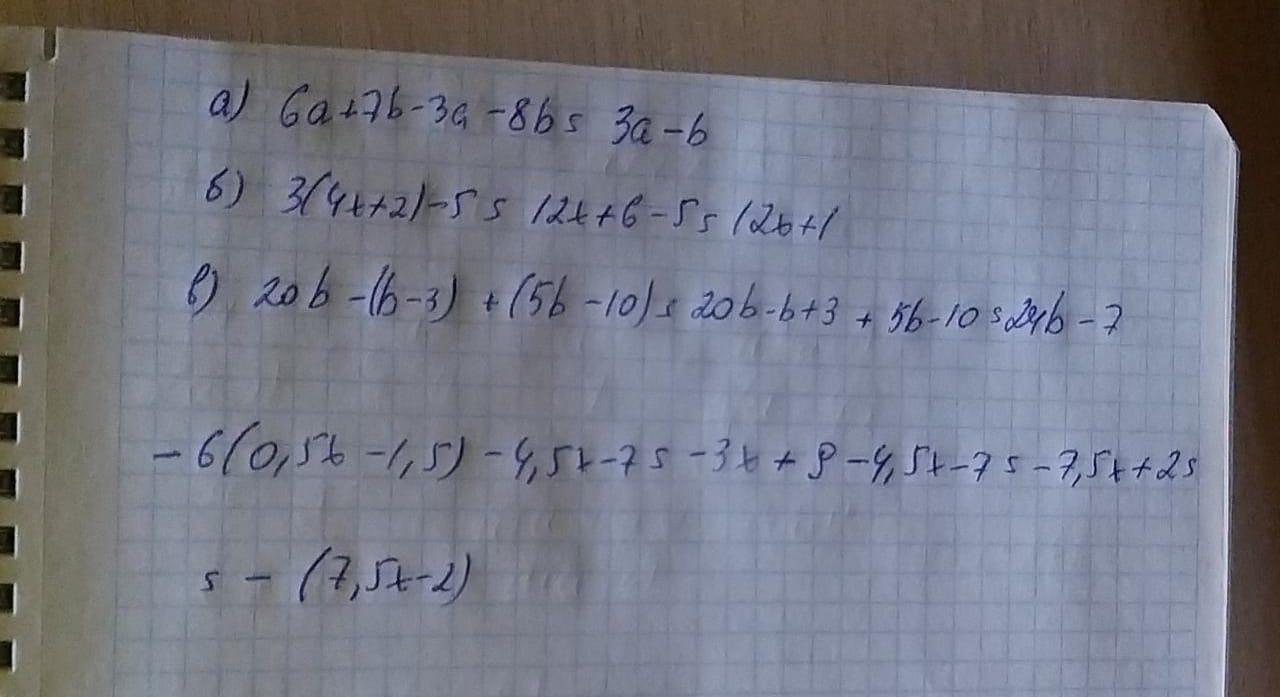 а) 6a+7b-3a-8b = 3a-b
б) 3(4x+2)-5 = 12x+6-5 = 12x+1
в) 20b-(b-3)+(5b-10) = 20b-b+3+5b-10 = 24b-7
-6(0,5x-1,5)-4,5x-7 = -3x+9-4,5x-7 = -7,5x+2 =
= -(7,5x-2)